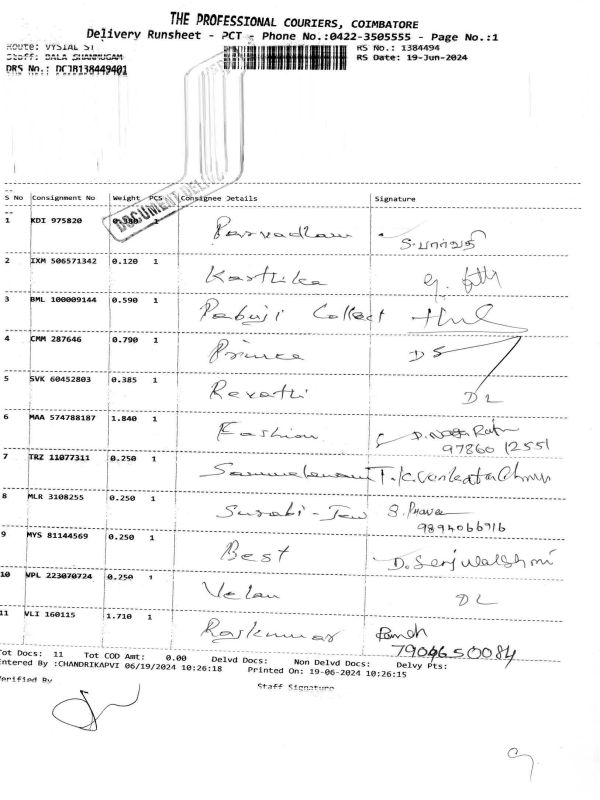 THE PROFESSIONAL COURIERS, COIMBATORE
Delivery Runsheet - PCT - Phone No.:0422-3505555 - Page No.:1
Route: VYSIAL ST RS No.: 1384494
Staff: BALA SHANMUGAM RS Date: 19-Jun-2024
DRS No.: DCJB138449401
DOCUMENT DELIV
S No Consignment No Weight PCS Consignee Details Signature
1 KDI 975820 0.380 1 Parvadham S. பார்வதி
2 IXM 506571342 0.120 1 Karthika
3 BML 100009144 0.590 1 Pabuji Collect
4 CMM 287646 0.790 1 Prince DS
5 SVK 60452803 0.385 1 Revathi DL
6 MAA 574788187 1.840 1 Fashion D. Naga Ratn
97860 12551
7 TRZ 11077311 0.250 1 T. K. Venkata
8 MLR 3108255 0.250 1 Surabi - Jew S.
9894066916
9 MYS 81144569 0.250 1 Best D.
10 VPL 223070724 0.250 1 Velan DL
11 VLI 160115 1.710 1 Rajkumar Ramesh
7904650084
Tot Docs: 11 Tot COD Amt: 0.00 Delvd Docs: Non Delvd Docs: Delvy Pts:
Entered By :CHANDRIKAPVI 06/19/2024 10:26:18 Printed On: 19-06-2024 10:26:15
Verified By Staff Signature